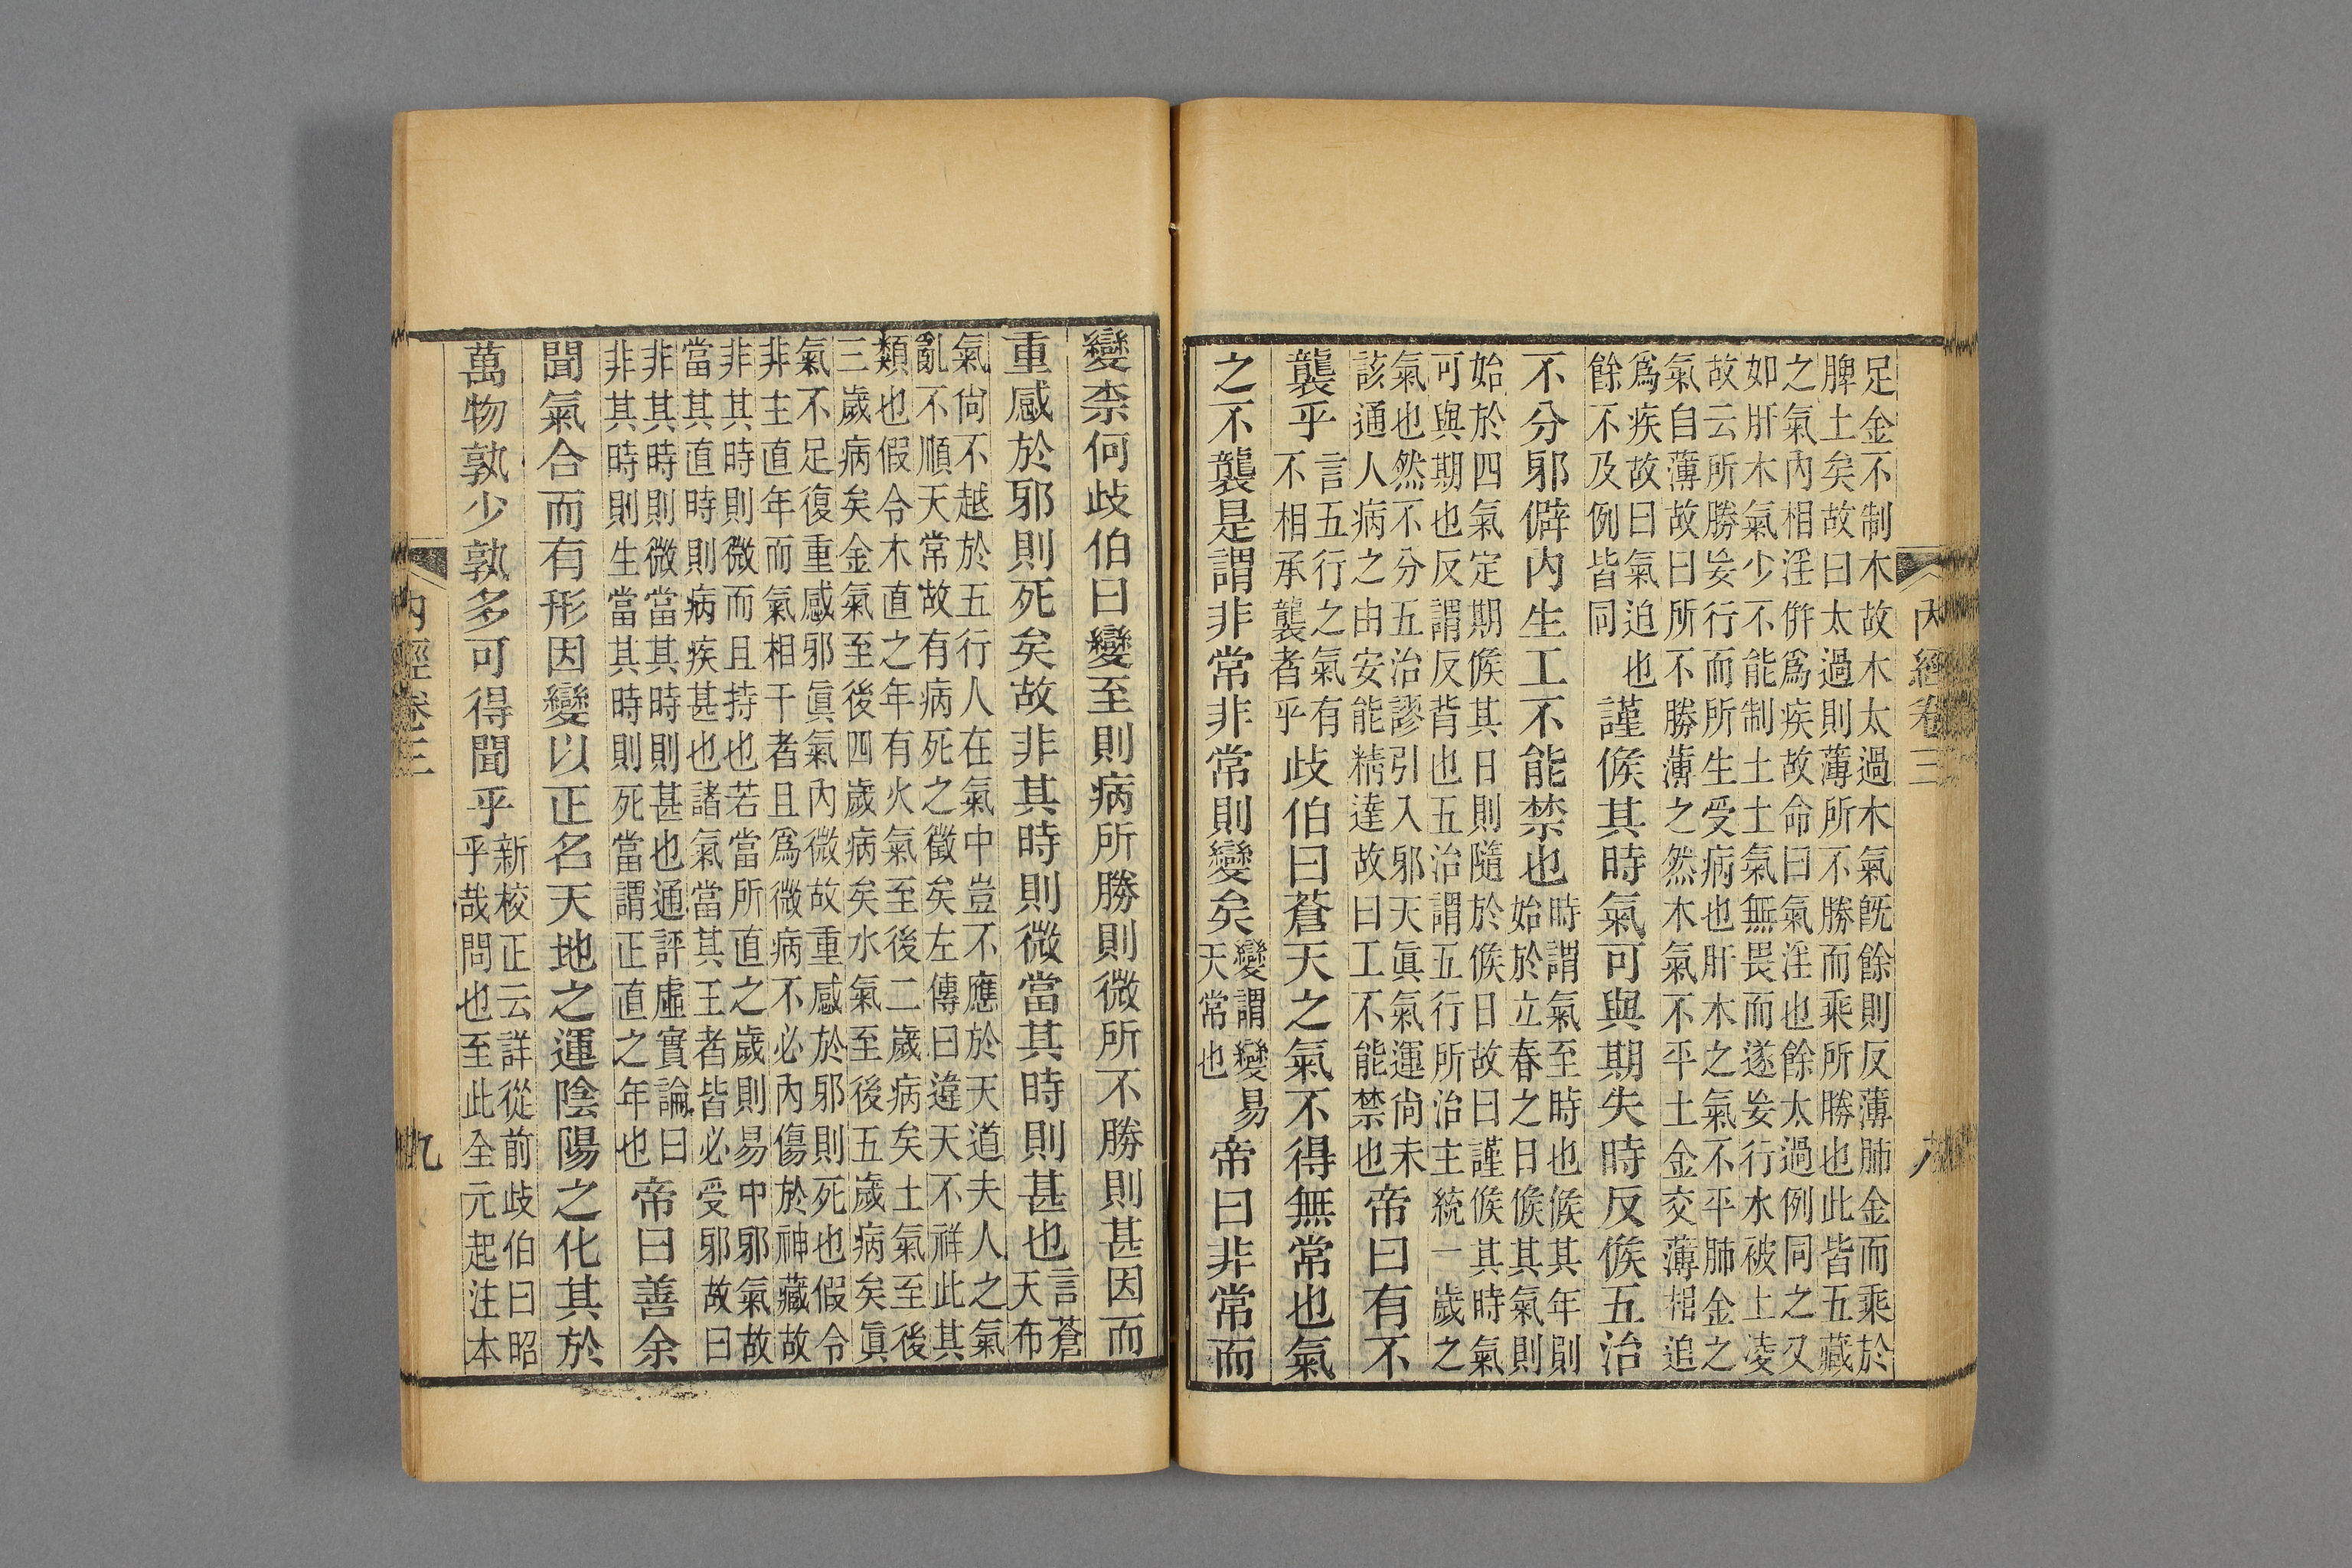 內經卷三 八
足金不制木故木太過木氣旣餘則反薄肺金而乘於
脾土矣故曰太過則薄所不勝而乘所勝也此皆五藏
之氣內相淫併爲疾故命曰氣淫也餘太過例同之又
如肝木氣少不能制土土氣無畏而遂妄行水被土凌
故云所勝妄行而所生受病也肝木之氣不平肺金之
氣自薄故曰所不勝薄之然木氣不平土金交薄相迫
爲疾故曰氣迫也
餘不及例皆同
謹候其時氣可與期失時反候五治
不分邪僻內生工不能禁也
時謂氣至時也候其年則
始於立春之日候其氣則
始於四氣定期候其日則隨於候日故曰謹候其時氣
可與期也反謂反背也五治謂五行所治主統一歲之
氣也然不分五治謬引入邪天眞氣運尚未
該通人病之由安能精達故曰工不能禁也
帝曰有不
襲乎
言五行之氣有
不相承襲者乎
歧伯曰蒼天之氣不得無常也氣
之不襲是謂非常非常則變矣
變謂變易
天常也
帝曰非常而
變柰何歧伯曰變至則病所勝則微所不勝則甚因而
重感於邪則死矣故非其時則微當其時則甚也
言蒼
天布
氣尚不越於五行人在氣中豈不應於天道夫人之氣
亂不順天常故有病死之徵矣左傳曰違天不祥此其
類也假令木直之年有火氣至後二歲病矣土氣至後
三歲病矣金氣至後四歲病矣水氣至後五歲病矣眞
氣不足復重感邪眞氣內微故重感於邪則死也假令
非主直年而氣相干者且爲微病不必內傷於神藏故
非其時則微而且持也若當所直之歲則易中邪氣故
當其直時則病疾甚也諸氣當其王者皆必受邪故曰
非其時則微當其時則甚也通評虛實論曰
非其時則生當其時則死當謂正直之年也
帝曰善余
聞氣合而有形因變以正名天地之運陰陽之化其於
萬物孰少孰多可得聞乎
新校正云詳從前歧伯曰昭
乎哉問也至此全元起注本
內經卷三 九